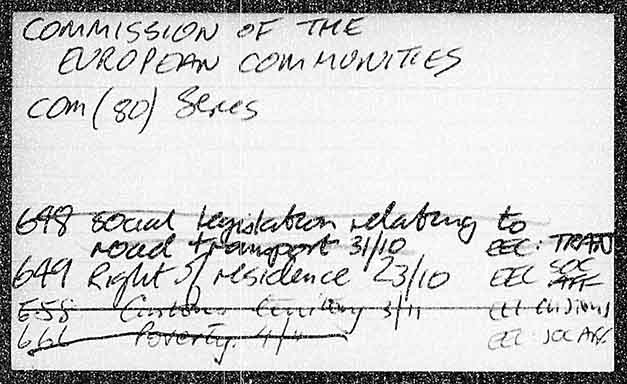 COMMISSION OF THE
EUROPEAN COMMUNITIES
COM (80) Series
648 social legislation relating to
road transport 31/10 EEC: TRAN
649 Right of residence 23/10 EEC SOC
AFF
658 Customs territory 3/11 EEC Customs
666 Poverty. 4/11 EEC: SOC AFF.